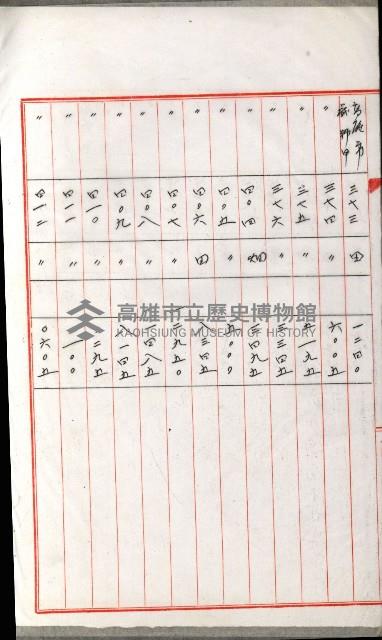 高雄市
戲獅甲 三七三 田 一二四〇
〃 三七四 〃 六〇〇五
〃 三七五 〃 五一九五
〃 三七六 〃 三三四五
〃 四〇四 畑 三四九五
〃 四〇五 〃 五〇〇〇
〃 四〇六 田 八三四五
〃 四〇七 〃 三九五〇
〃 四〇八 〃 一四八五
〃 四〇九 〃 一一四五
〃 四一〇 〃 二九五
〃 四一一 〃 一〇〇
〃 四一二 〃 〇六〇五
高雄市立歷史博物館
KAOHSIUNG MUSEUM OF HISTORY